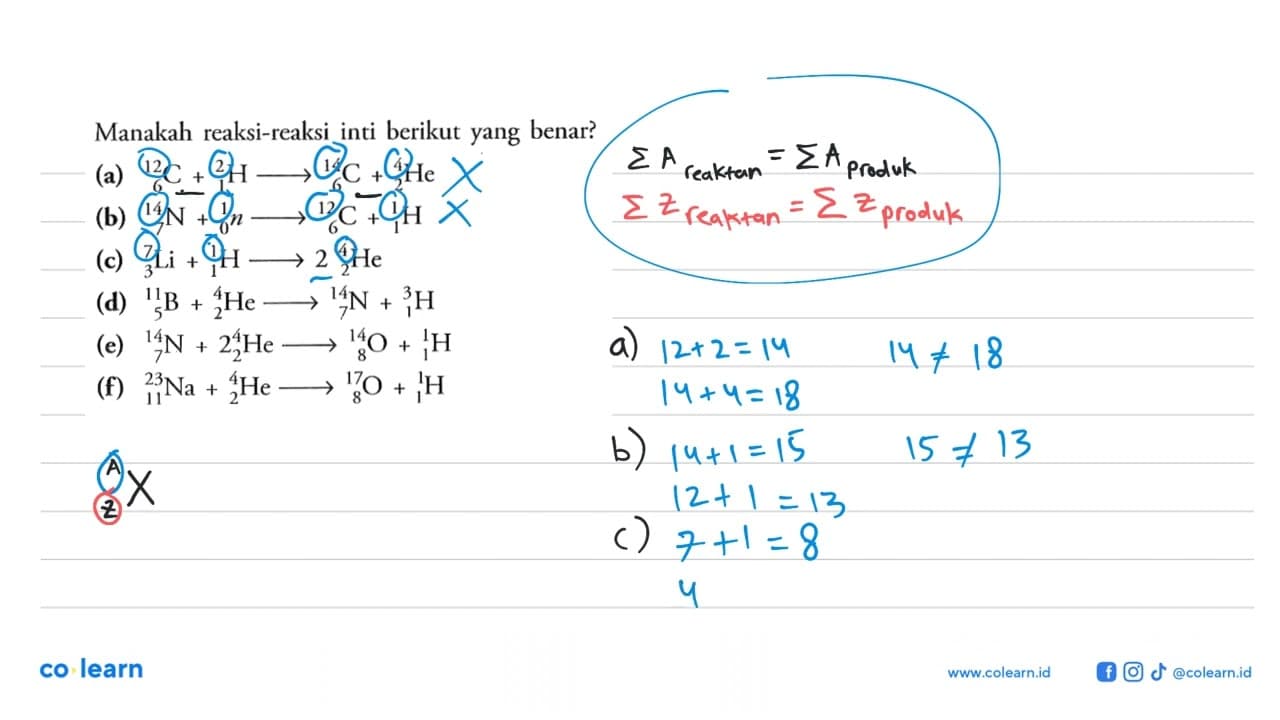 Manakah reaksi-reaksi inti berikut yang benar?
(a) ¹²₆C + ²₁H ⟶ ¹⁴₆C + ⁴₂He X
(b) ¹⁴₇N + ¹₀n ⟶ ¹²₆C + ¹₁H X
(c) ⁷₃Li + ¹₁H ⟶ 2 ⁴₂He
(d) ¹¹₅B + ⁴₂He ⟶ ¹⁴₇N + ³₁H
(e) ¹⁴₇N + 2⁴₂He ⟶ ¹⁴₈O + ¹₁H
(f) ²³₁₁Na + ⁴₂He ⟶ ¹⁷₈O + ¹₁H
A
Z X
Σ A reaktan = Σ A produk
Σ Z reaktan = Σ Z produk
a) 12 + 2 = 14 14 ≠ 18
14 + 4 = 18
b) 14 + 1 = 15 15 ≠ 13
12 + 1 = 13
c) 7 + 1 = 8
4
co learn
www.colearn.id @colearn.id